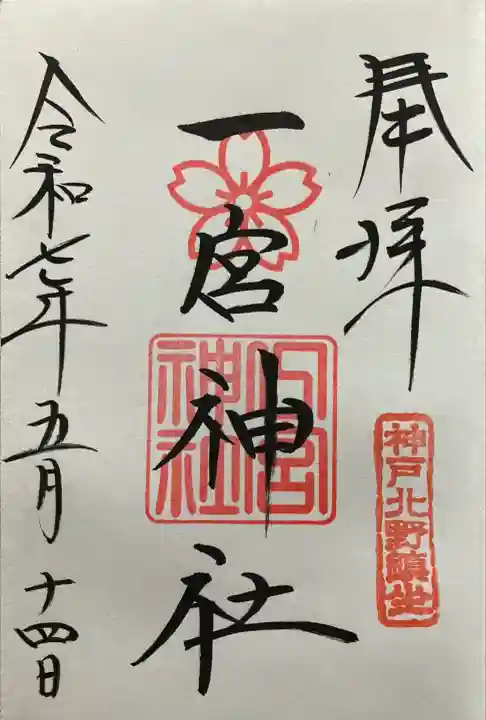 奉拝
神戸北野鎮坐
一宮神社
一宮神社
令和七年五月十四日